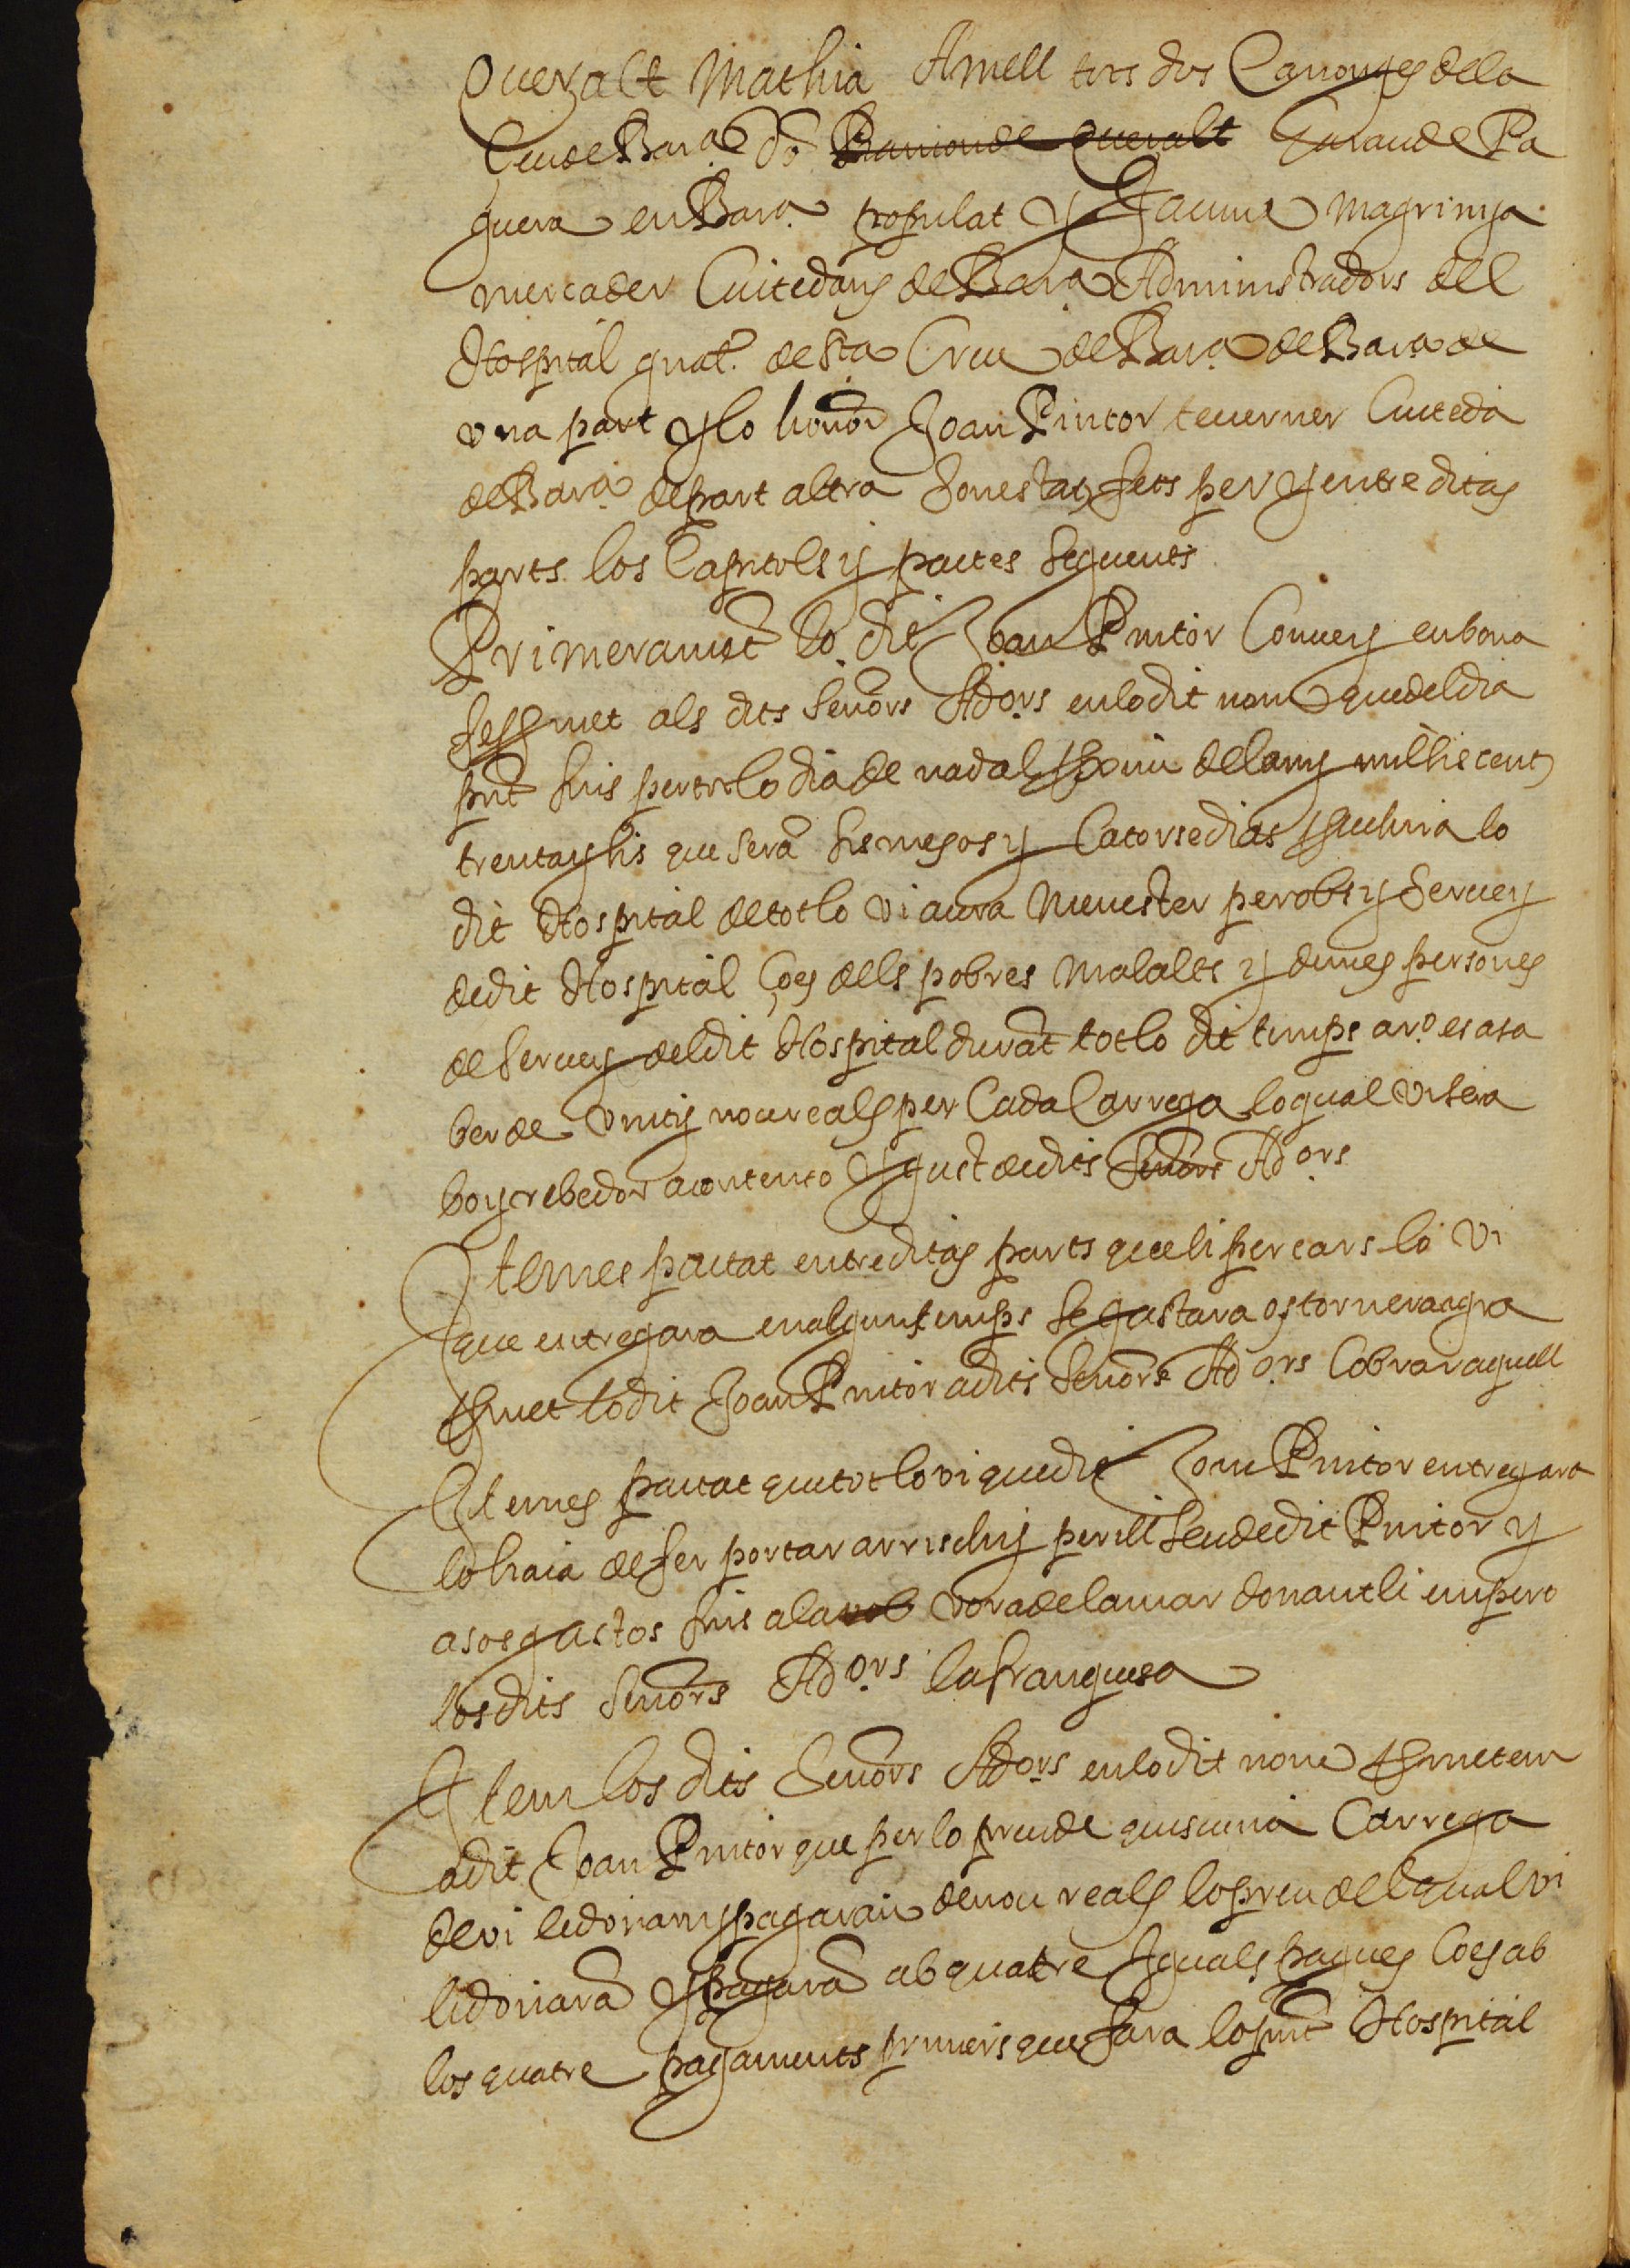 Queralt Mathia Amell tots dos Canonges dela
Seu de Bar.ª Dō Ramon de Queralt Guerau de Pa
guera en Bar.ª populat y Jaume Magrinya
mercader Ciutedans de Bar.ª Administradors del
Hospital gnāl. de Sta Creu de Bar.ª de Bar.ª de
vna part y lo honōr Joan Pintor teuerner Ciutedà
de Bar.ª de part altra son estats fets per y entre ditas
parts los Capitols y pactes seguents
Primeramēt lo dit Joan Pintor Conuey en bona
fe y promet als dits señōrs Ad.ors en lo dit nom que del dia
pn̄t fins per tot lo dia de nadal proxim del any mil siscents
trenta y sis que serā sis mesos y Catorse dias prouehira lo
dit Hospital de tot lo vi aura menester per obs y seruey
de dit Hospital Ço es dells pobres malalts y demes persones
de seruey del dit Hospital durāt tot lo dit temps a r.º es a sa
ber de vint y nou reals per Cada Carrega lo qual vi sera
bo y rebedor a contento y gust de dits señōrs Ad.ors
Item es pactat entre ditas parts que si per cars lo vi
que entregara en algun temps se gastara o s tornera agra
promet lo dit Joan Pintor a dits señōrs Ad.ors Cobrar aquell
Item es pactat que tot lo vi que dit Joan Pintor entregara
lo haia de fer portar a rrisch y perill seu de dit Pintor y
a sos gastos fins a la vob vora de la mar donantli empero
los dits señōrs Ad.ors la franquesa
Item los dits señōrs Ad.ors en lo dit nom prometem
a dit Joan Pintor que per lo preu de quiscuna Carrega
de vi li donaran y pagaran de nou reals lo preu del qual vi
li donarā y pagarā ab quatre yguals pagues Ço es ab
los quatre pagaments primers que fara lo pn̄t Hospital